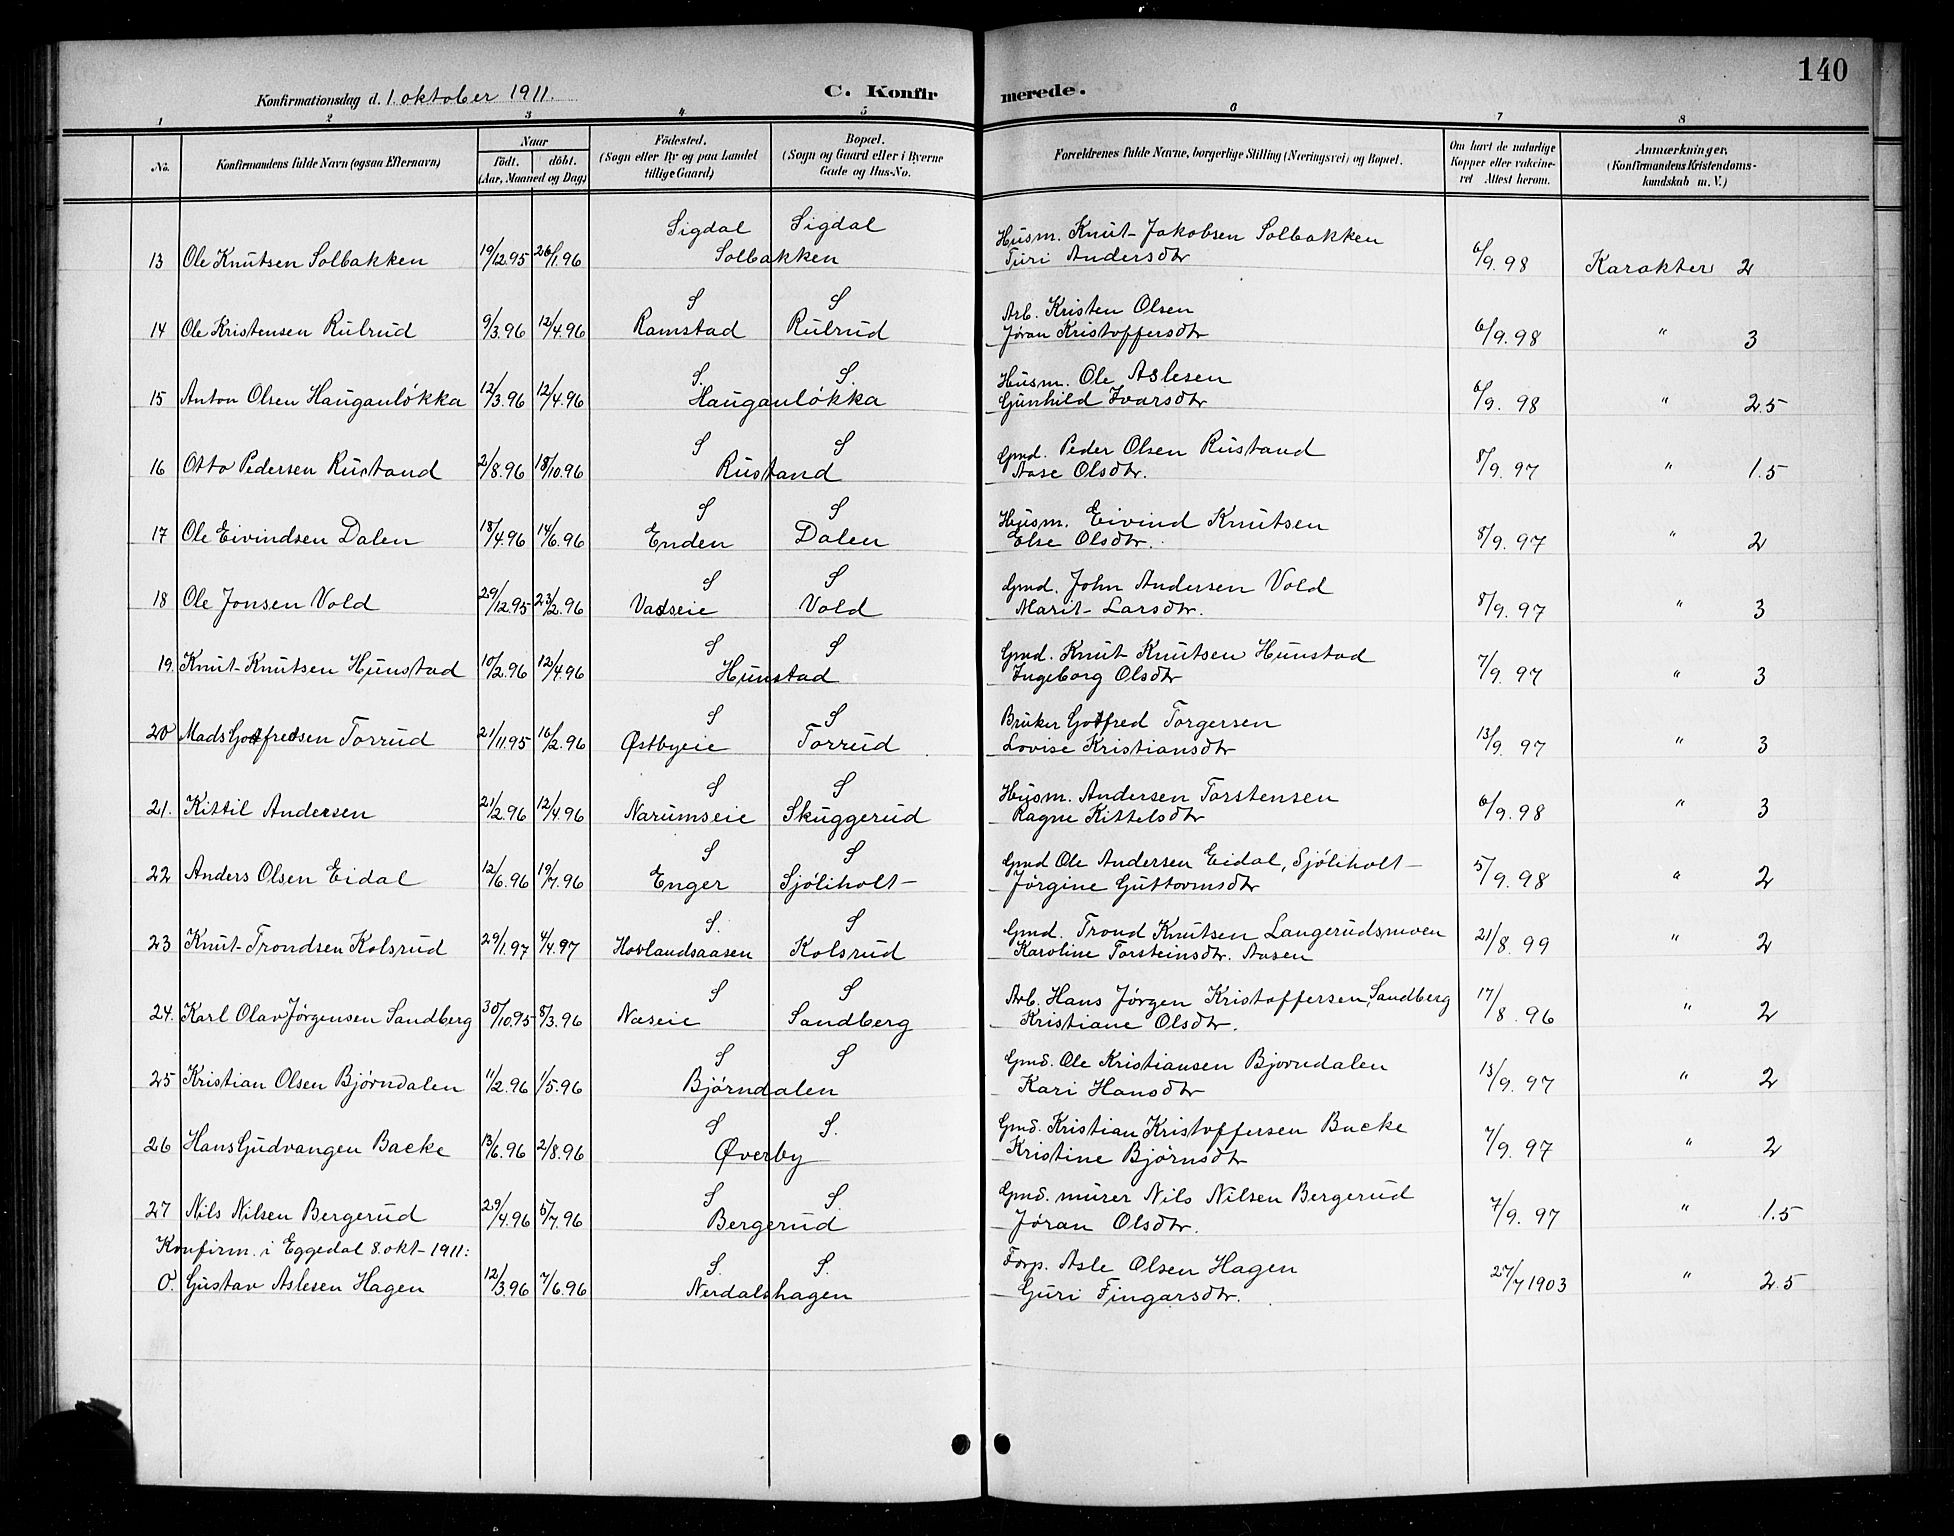 140
Konfirmationsdag d. 1. oktober 1911. C. Konfirmerede.
1 2 3 4 5 6 7 8
No. Konfirmandens fulde Navn (ogsaa Efternavn) Naar født. døbt. (Aar, Maaned og Dag) Födested. (Sogn eller By og paa Landet tillige Gaard) Bopæl. (Sogn og Gaard eller i Byerne Gade og Hus-No. Forældrenes fulde Navne, borgerlige Stilling (Næringsvei) og Bopæl. Om havt de naturlige Kopper eller vaccineret Attest herom. Anmærkninger, (Konfirmandens Kristendomskundskab m. V.)
Sigdal Sigdal Husm. Knut Jakobsen Solbakken
13 Ole Knutsen Solbakken 19/12.95 26/1.96 Solbakken Turi Andersdtr 6/9.98 Karakter 2
S S Arb. Kristen Olsen
14 Ole Kristensen Rulrud 9/3.96 12/4.96 Ramstad Rulrud Jøran Kristoffersdtr 6/9.98 " 3
S. S. Husm. Ole Aslesen
15 Anton Olsen Hauganløkka 12/3.96 12/4.96 Hauganløkka Gunhild Ivarsdtr 6/9.98 " 2.5
S S Gmd. Peder Olsen Rustand
16 Otto Pedersen Rustand 2/8.96 18/10.96 Rustand Aase Olsdtr. 8/9.97 " 1.5
S S Husm. Eivind Knutsen
17 Ole Eivindsen Dalen 18/4.96 14/6.96 Enden Dalen Else Olsdtr. 8/9.97 " 2
S S Gmd. John Andersen Vold
18 Ole Jonsen Vold 29/12.95 23/2.96 Vadseie Vold Marit Larsdtr. 8/9.97 " 3
S S Gmd. Knut Knutsen Hunstad
19. Knut Knutsen Hunstad 10/2.96 12/4.96 Hunstad Ingeborg Olsdtr 7/9.97 " 3
S S Bruker Gotfred Torgersen
20 Mads Gotfredsen Torrud 21/11.95 16/2.96 Østbyeie Torrud Lovise Kristiansdtr 13/9.97 " 3
S S Husm. Andersen Torstensen
21. Kittil Andersen 21/2.96 12/4.96 Narumseie Skuggerud Ragne Kittelsdtr 6/9.98 " 3
S S Gmd Ole Andersen Eidal, Sjøliholt
22 Anders Olsen Eidal 12/6.96 19/7.96 Enger Sjøliholt Jørgine Guttormsdtr 5/9.98 " 2
S. S Gmd. Trond Knutsen Langerudsmoen
23 Knut Trondsen Kolsrud 29/1.97 4/4.97 Hovlandsaasen Kolsrud Karoline Torsteinsdtr. Aasen 21/8.99 " 2
S S Arb. Hans Jørgen Kristoffersen, Sandberg
24. Karl Olav Jørgensen Sandberg 30/10.95 8/3.96 Næseie Sandberg Kristiane Olsdtr. 17/8.96 " 2
S S Gmd. Ole Kristiansen Bjørndalen
25 Kristian Olsen Bjørndalen 11/2.96 1/5.96 Bjørndalen Kari Hansdtr 13/9.97 " 2
S S. Gmd. Kristian Kristoffersen Backe
26 Hans Gudvangen Backe 13/6.96 2/8.96 Øverby Kristine Bjørnsdtr 7/9.97 " 2
S S. Gmd. murer Nils Nilsen Bergerud
27 Nils Nilsen Bergerud 29/4.96 5/7.96 Bergerud Jøran Olsdtr. 7/9.97 " 1.5
Konfirm. i Eggedal 8. okt. 1911:
S. S. Forp. Asle Olsen Hagen
0. Gustav Aslesen Hagen 12/3.96 7/6.96 Nerdalshagen Guri Fingarsdtr. 27/7 1903 " 2.5